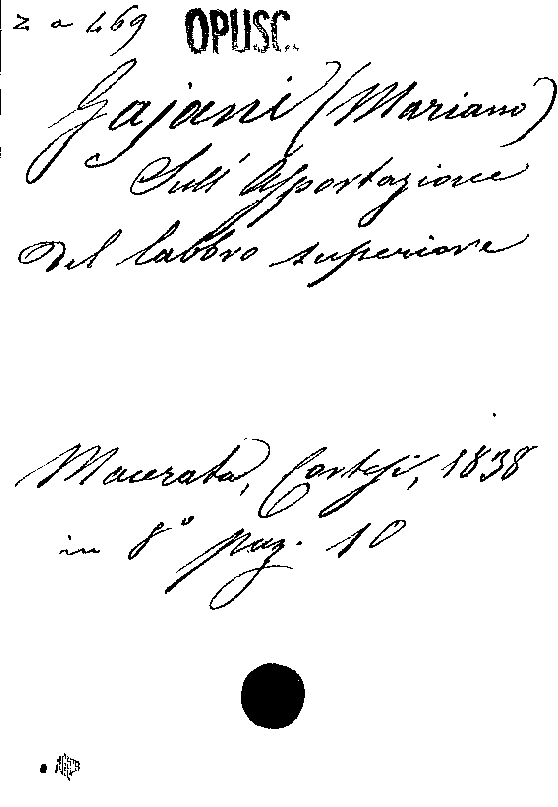 z a 469 OPUSC.
Gajani (Mariano)
Sull' Asportazione
del labbro superiore
Macerata, Cortesi, 1838
in 8° pag. 10